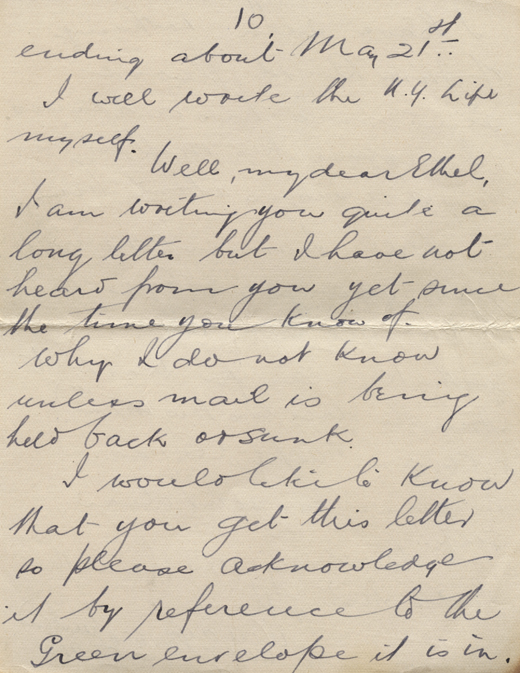 10.
ending about May 21st.
I will write the N.Y. Life
myself.
Well, my dear Ethel,
I am writing you quite a
long letter but I have not
heard from you yet since
the time you know of.
Why I do not know
unless mail is being
held back or sunk.
I would like to know
that you get this letter
so please acknowledge
it by reference to the
Green envelope it is in.